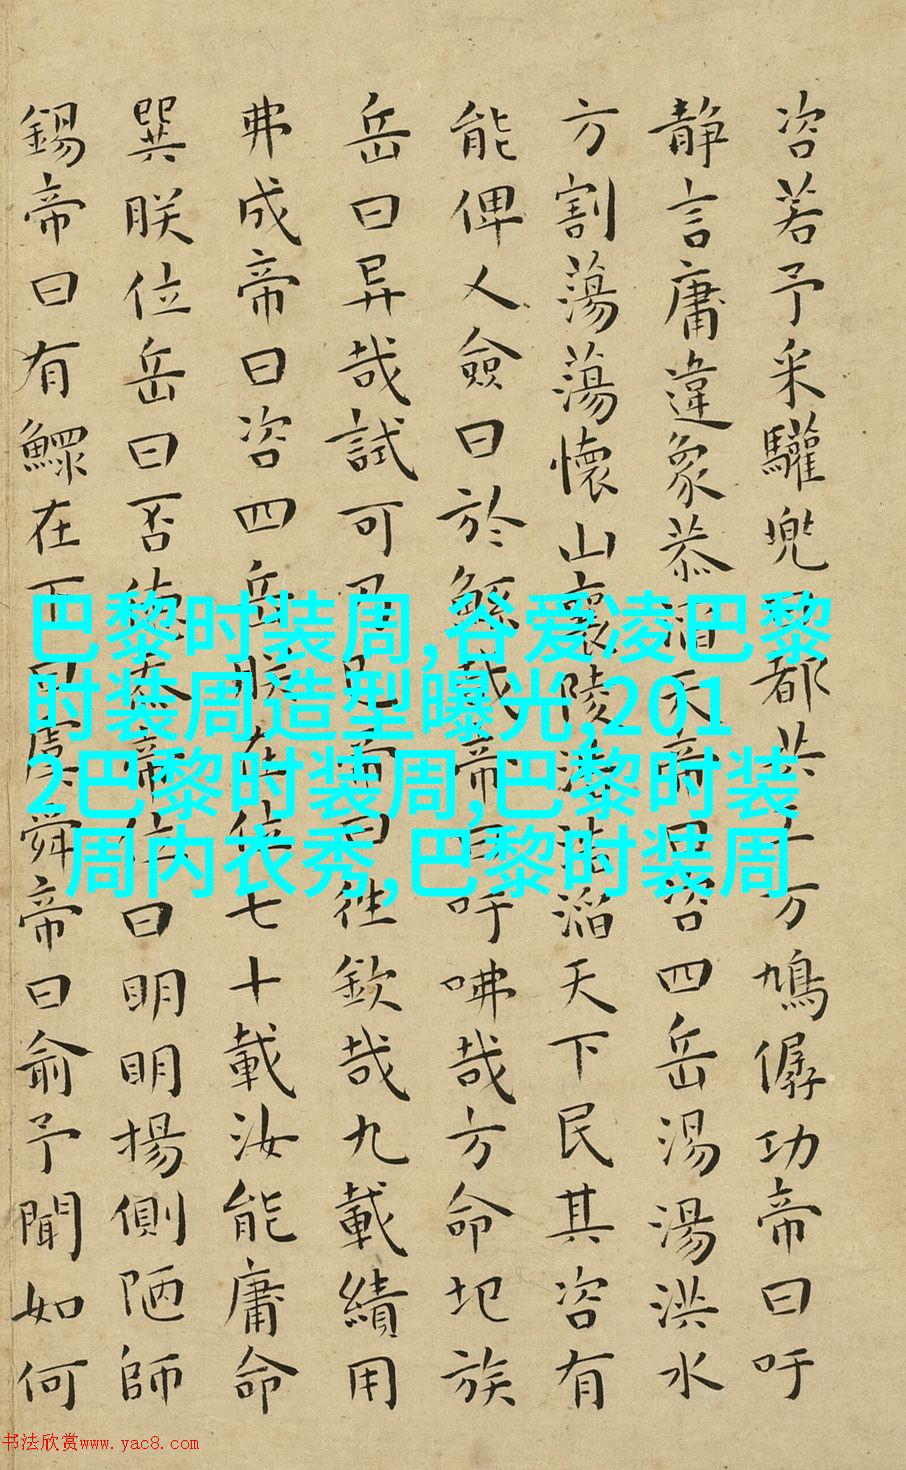 咨若予采驩兜曰都共工方鳩僝功帝曰吁
靜言庸違象恭滔天帝曰咨四岳湯湯洪水
方割蕩蕩懷山襄陵浩浩滔天下民其咨有
能俾乂僉曰於鯀哉帝曰吁咈哉方命圮族
岳曰异哉試可乃已帝曰往欽哉九載績用
弗成帝曰咨四岳朕在位七十載汝能庸命
巽朕位岳曰否德忝帝位曰明明揚側陋師
錫帝曰有鰥在下曰虞舜帝曰俞予聞如何
巴黎时装周,谷爱凌巴黎
时装周造型曝光,201
2巴黎时装周,巴黎时装
周内衣秀,巴黎时装周
书法欣赏www.yac8.com